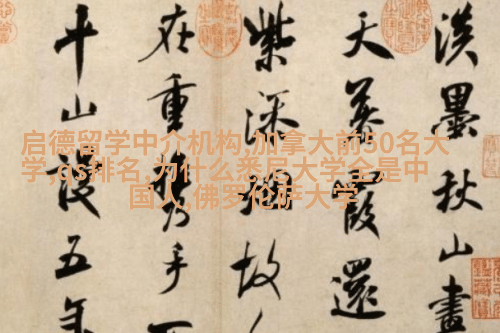 启德留学中介机构,加拿大前50名大
学,qs排名,为什么悉尼大学全是中
国人,佛罗伦萨大学
淡墨秋山畫
天暮霞還
紫添烟故
在重攜手不
平山謾五年